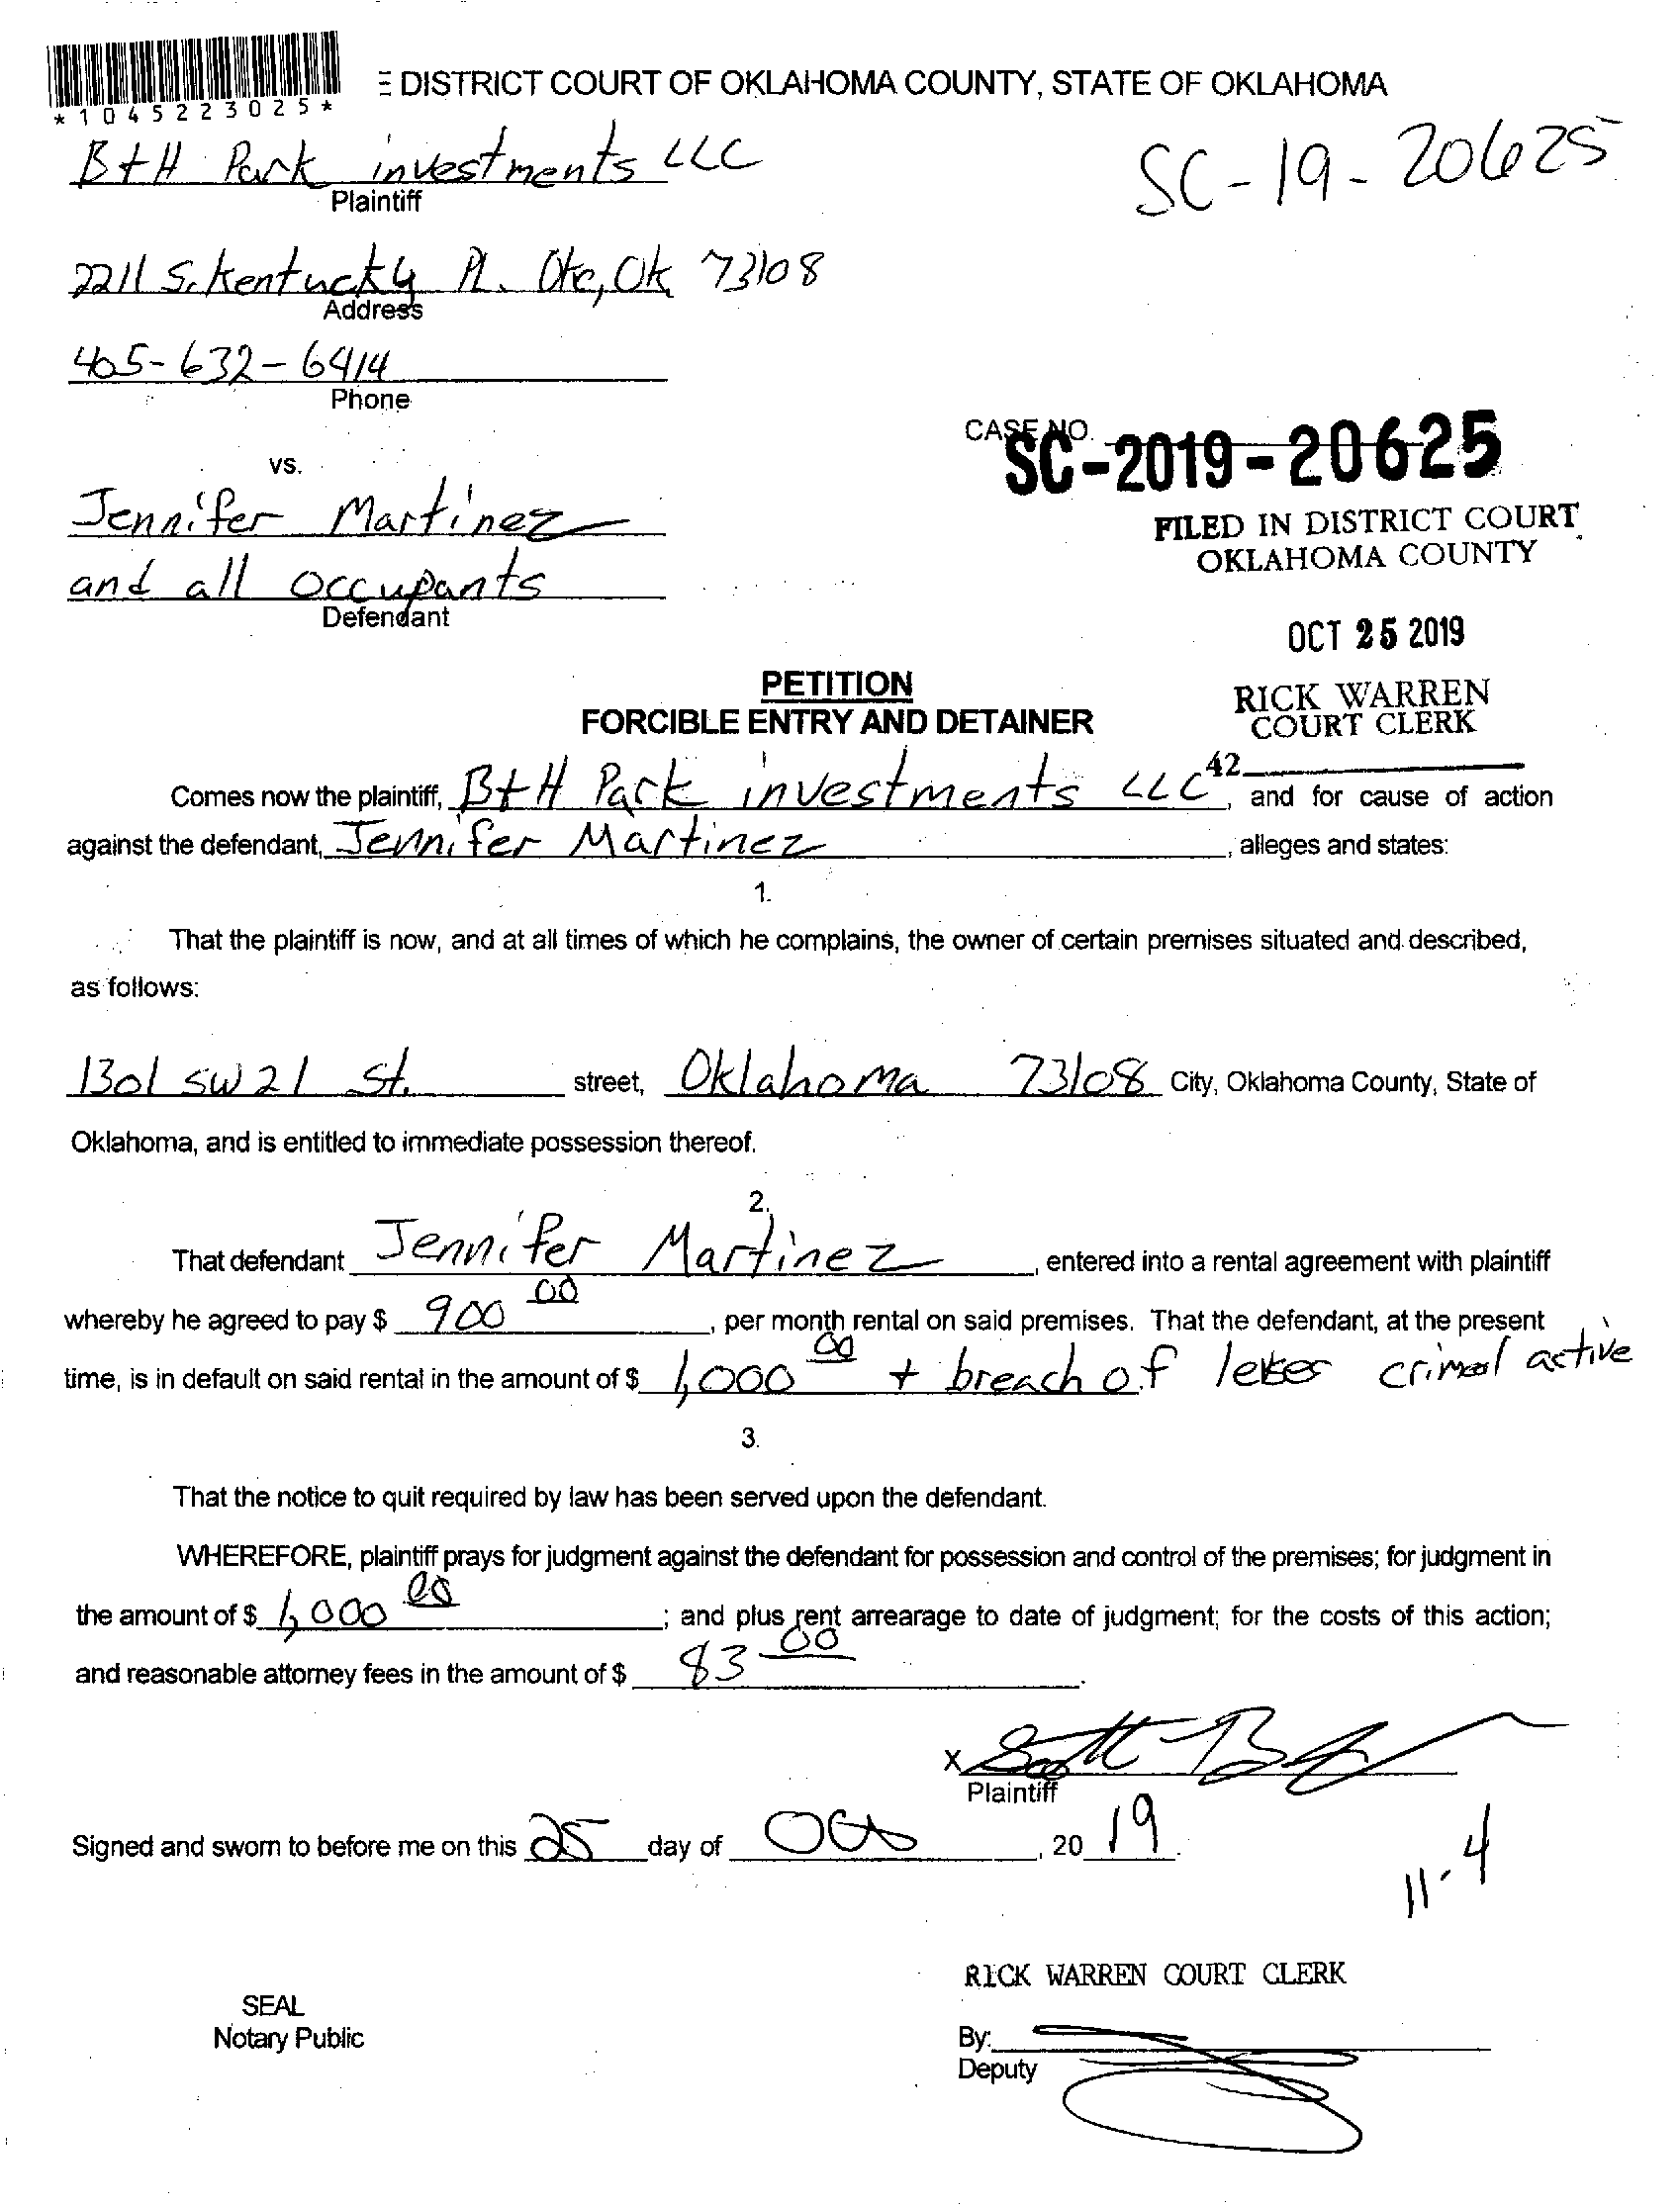 *1045223025*
E DISTRICT COURT OF OKLAHOMA COUNTY, STATE OF OKLAHOMA
B+H Park investments LLC
Plaintiff
SC-19-20625
2211 S. Kentucky Pl. Okc, Ok 73108
Address
405-632-6414
Phone
CASE NO.
SC-2019-20625
vs.
Jennifer Martinez
and all occupants
Defendant
FILED IN DISTRICT COURT
OKLAHOMA COUNTY
OCT 25 2019
RICK WARREN
COURT CLERK
42
PETITION
FORCIBLE ENTRY AND DETAINER
Comes now the plaintiff, B+H Park investments LLC, and for cause of action
against the defendant, Jennifer Martinez, alleges and states:
1.
That the plaintiff is now, and at all times of which he complains, the owner of certain premises situated and described,
as follows:
1301 SW 21 St. street, Oklahoma 73108 City, Oklahoma County, State of
Oklahoma, and is entitled to immediate possession thereof.
2.
That defendant Jennifer Martinez, entered into a rental agreement with plaintiff
whereby he agreed to pay $ 900 00, per month rental on said premises. That the defendant, at the present
time, is in default on said rental in the amount of $ 1,000 00 + breach of active
3.
That the notice to quit required by law has been served upon the defendant.
WHEREFORE, plaintiff prays for judgment against the defendant for possession and control of the premises; for judgment in
the amount of $ 1,000 00; and plus rent arrearage to date of judgment; for the costs of this action;
and reasonable attorney fees in the amount of $ 83 00.
X
Plaintiff
Signed and sworn to before me on this 25 day of Oct, 20 19.
11-4
RICK WARREN COURT CLERK
SEAL
Notary Public
By:
Deputy